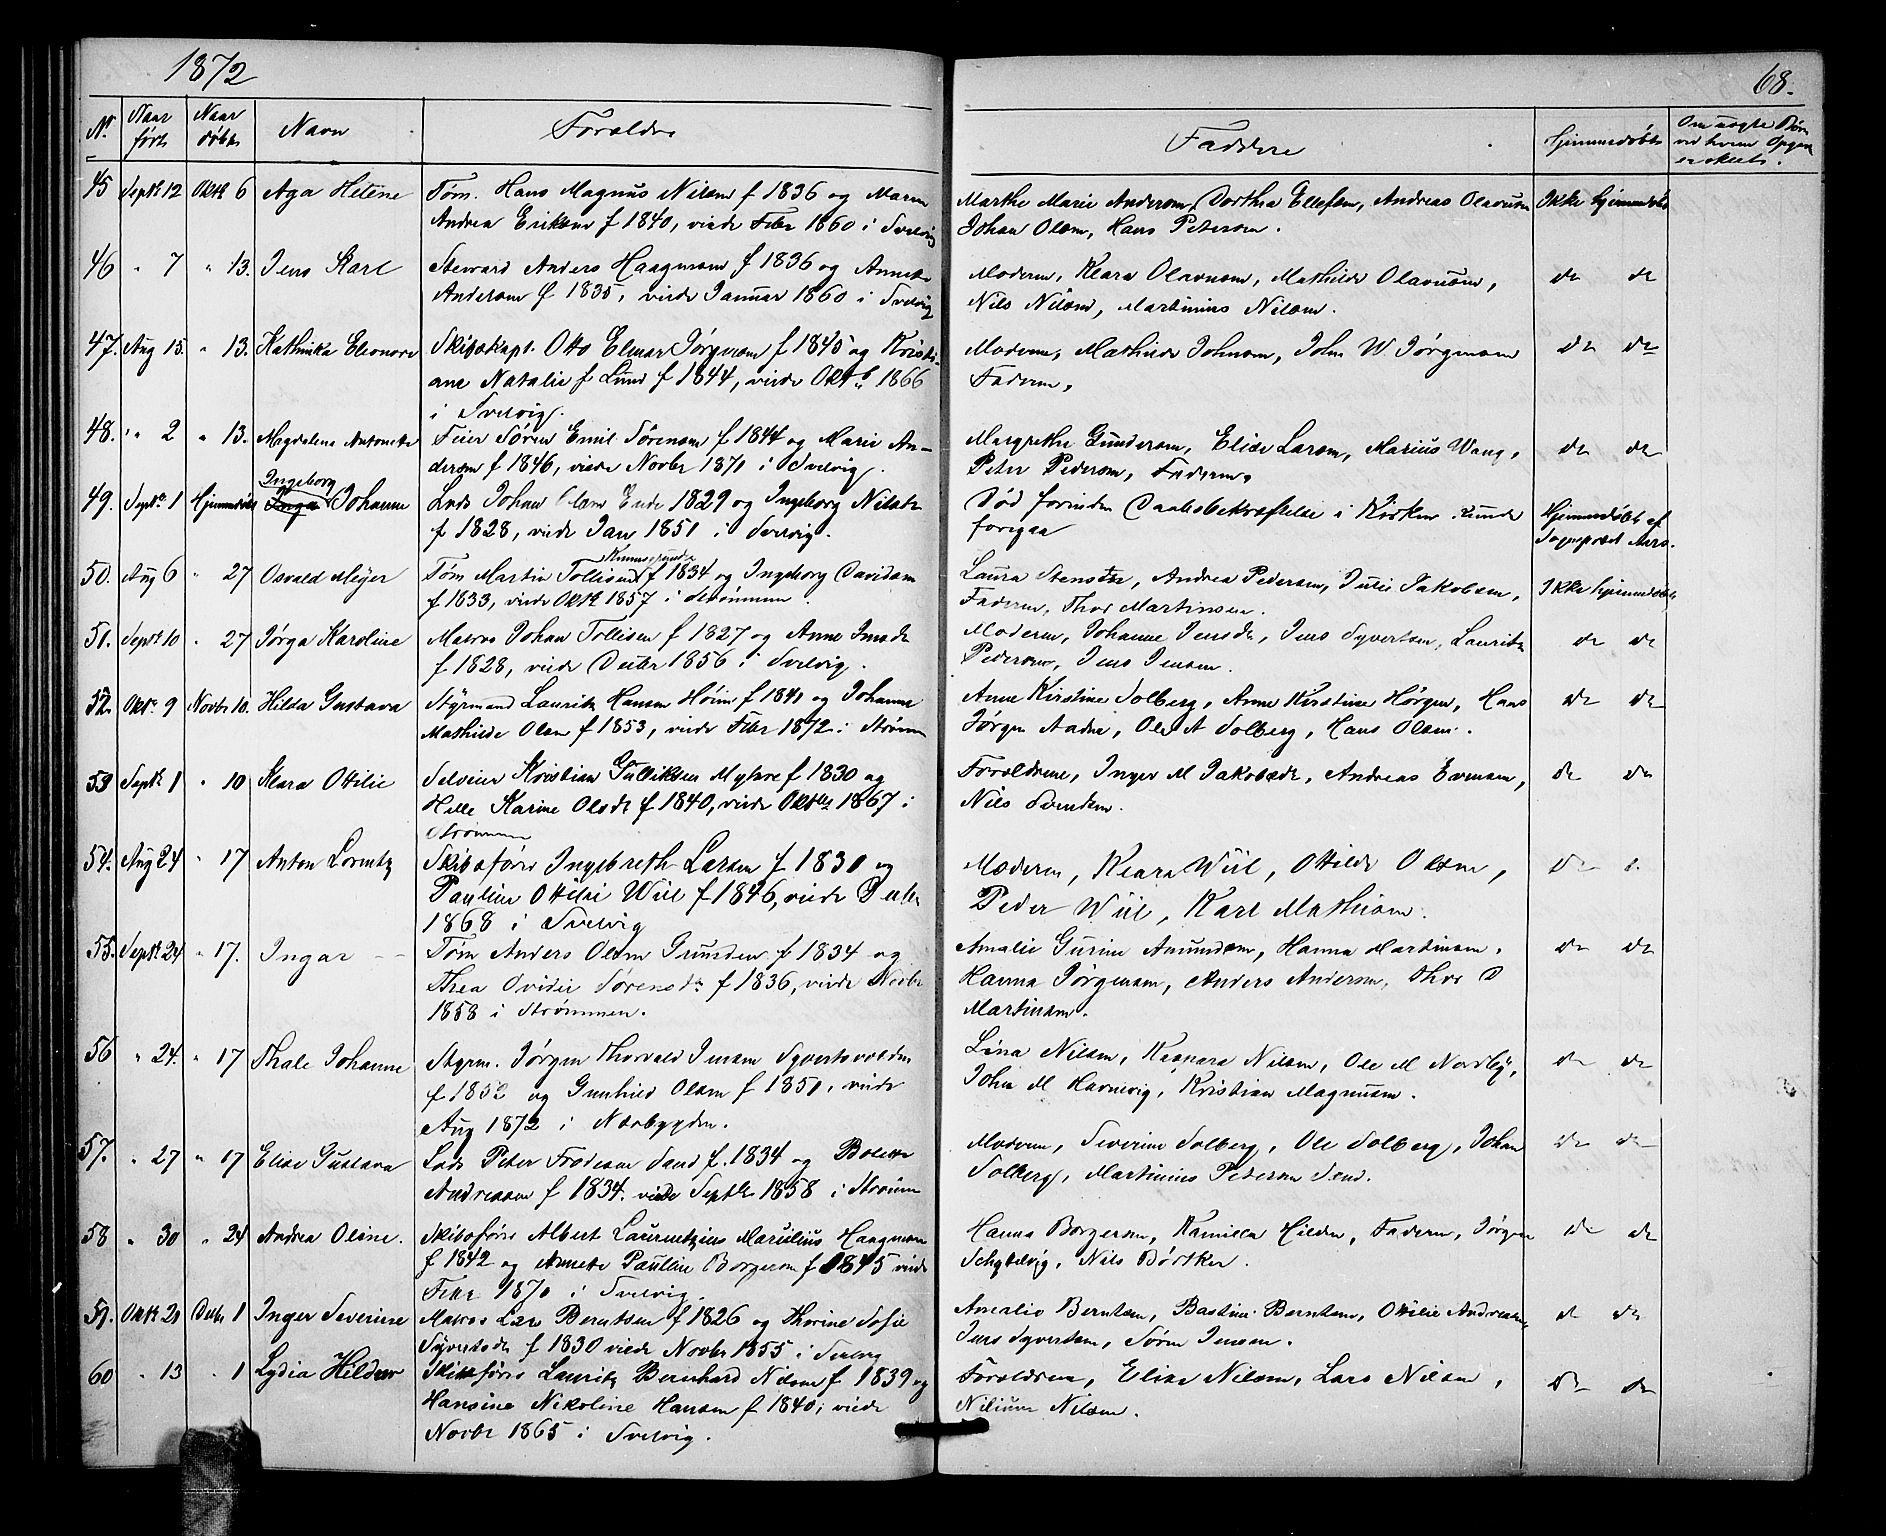 1872
68.
Nr. Naar født Naar døbt Navn Forældre Faddere Hjemmedøbt Om uægte Børn
ved hvem Opgav
er skeet.
45 Septbr 12 Oktbr 6 Aga Helene Tøm. Hans Magnus Nilsen f 1836 og Maren Marthe Marie Andersen, Dorthea Ellefsen, Andreas Olavusen Ikke hjemmedøbt
Andrea Eriksen f 1840, viede Febr 1860 i Svelvig Johan Olsen, Hans Petersen.
46 " 7 " 13. Jens Karl Steward Anders Haagensen f 1836 og Annette Moderen, Klara Olavusen, Mathilde Olavusen, do do
Andersen f 1835, viede Januar 1860 i Svelvig Nils Nilsen, Martinius Nilsen.
47. Aug 15. " 13. Kathinka Eleonore Skibskapt. Otto Elmar Jørgensen f 1845 og Kristi- Moderen, Mathilde Johnsen, John W Jørgensen do do
ane Natalie f Lund f 1844, viede Oktbr 1866 Faderen,
i Svelvig.
48. " 2 " 13. Magdalena Antonette Feier Søren Emil Sørensen f 1844 og Marie An- Margrethe Gundersen, Elise Larsen, Marius Wang, do do
dersen f 1846, viede Novbr 1870 i Svelvig. Peter Pedersen, Faderen,
49. Septbr 1 Hjemmedøbt Ingeborg Johanne Lods Johan Olsen Ende 1829 og Ingeborg Nilsdr Død forinden Daabsbekræftelse i Kirken kunde Hjemmedøbt af
f 1828, viede Jan 1851 i Svelvig. foregaa Sogneprest
50. Aug 6 " 27 Osvald Meyer Tøm Martin Tollisen f 1834 og Ingeborg Davidsen Laura Andrea Pedersen, Julie Jakobsen, Ikke hjemmedøbt
f 1833, viede Oktbr 1857 i Strømmen. Faderen, Thor Martinsen.
51. Septbr 10 " 27 Jørga Karoline Matros Johan Tollisen f 1827 og Anne Jensdr Moderen, Johanne Jensdr, Jens Syvertsen, Lauritz do do
f 1828, viede Decbr 1856 i Svelvig. Pedersen, Jens Jensen.
52. Oktr 9 Novbr 10. Hilda Gustava Styrmand Lauritz Hansen f 1841 og Johanne Anne Kirstine Solberg, Anne Kirstine Hørgen, Hans do do
Mathilde Olsen f 1853, viede Febr 1872 i Strømm Jørgen Aadne, Ole A Solberg, Hans Olsen.
53 Septbr 1 " 10 Klara Otilie Selveier Kristian Gulliksen Myhre f 1830 og Forældrene, Inger M Jakobsdr, Andreas Evensen, do do
Helle Karine Olsdr f 1840, viede Oktbr 1867 i Nils Svendsen.
Strømmen
54. Aug 24 " 17 Anton Lorentz Skibsfører Ingebreth Larsen f 1830 og Moderen, Klara Wiil, Otilde Olsen, do
Pauline Otilie Wiil f 1846, viede Decbr Peder Wiil, Karl Mathisen.
1868 i Svelvig
55. Septbr 24 " 17. Ingar Tøm Anders Olsen Grunden f 1834 og Amalie Gurine Amundsen, Hanna Martinsen, do do
Thea Ovidie Sørensdr f 1836, viede Novbr Hanna Jørgensen, Anders Andersen, Thor D
1858 i Strømmen. Martinsen.
56 " 24. " 17 Thale Johanne Styrm. Jørgen Thorvald Jensen Syvertsvolden Lina Nilsen, Kaspara Nilsen, Ole M Nordby, do do
f 1852 og Gunhild Olsen f 1851, viede John M Havnevig, Kristian Magnusen.
Aug 1872 i Næsbygden.
57. " 27 " 17 Elise Gustava Lods Peter Frodesen Sand f. 1834 og Bolette Moderen, Severine Solberg, Ole Solberg, Johan do do
Andreasen f 1834. viede Septbr 1858 i Strømm Solberg, Martinius Petersen Sand.
58 " 30 " 24 Andrea Oline. Skibsfører Albert Laurentzius Marulius Haagensen Hanna Borgersen, Kamilla Hilden, Faderen, Jørgen do do
f 1842 og Annette Pauline Borgersen f 1845 viede Schytelvig, Nils Børtker.
Febr 1870 i Svelvig.
59. Oktbr 21 Decbr 1 Inger Severine Matros Lars Berntsen f 1826 og Thorine Sofie Amalie Berntsen, Bastine Berntsen, Otilie Andreasen do do
Syvertsdr f 1830 viede Novbr 1855 i Svelvig Jens Syvertsen, Søren Jensen.
60 " 13 " 1 Lydia Hildur Skibsfører Lauritz Bernhard Nilsen f 1839 og Forældrene, Elise Nilsen, Lars Nilsen, do do
Hansine Nikoline Hansen f 1840, viede Nilsen.
Novbr 1865 i Svelvig.